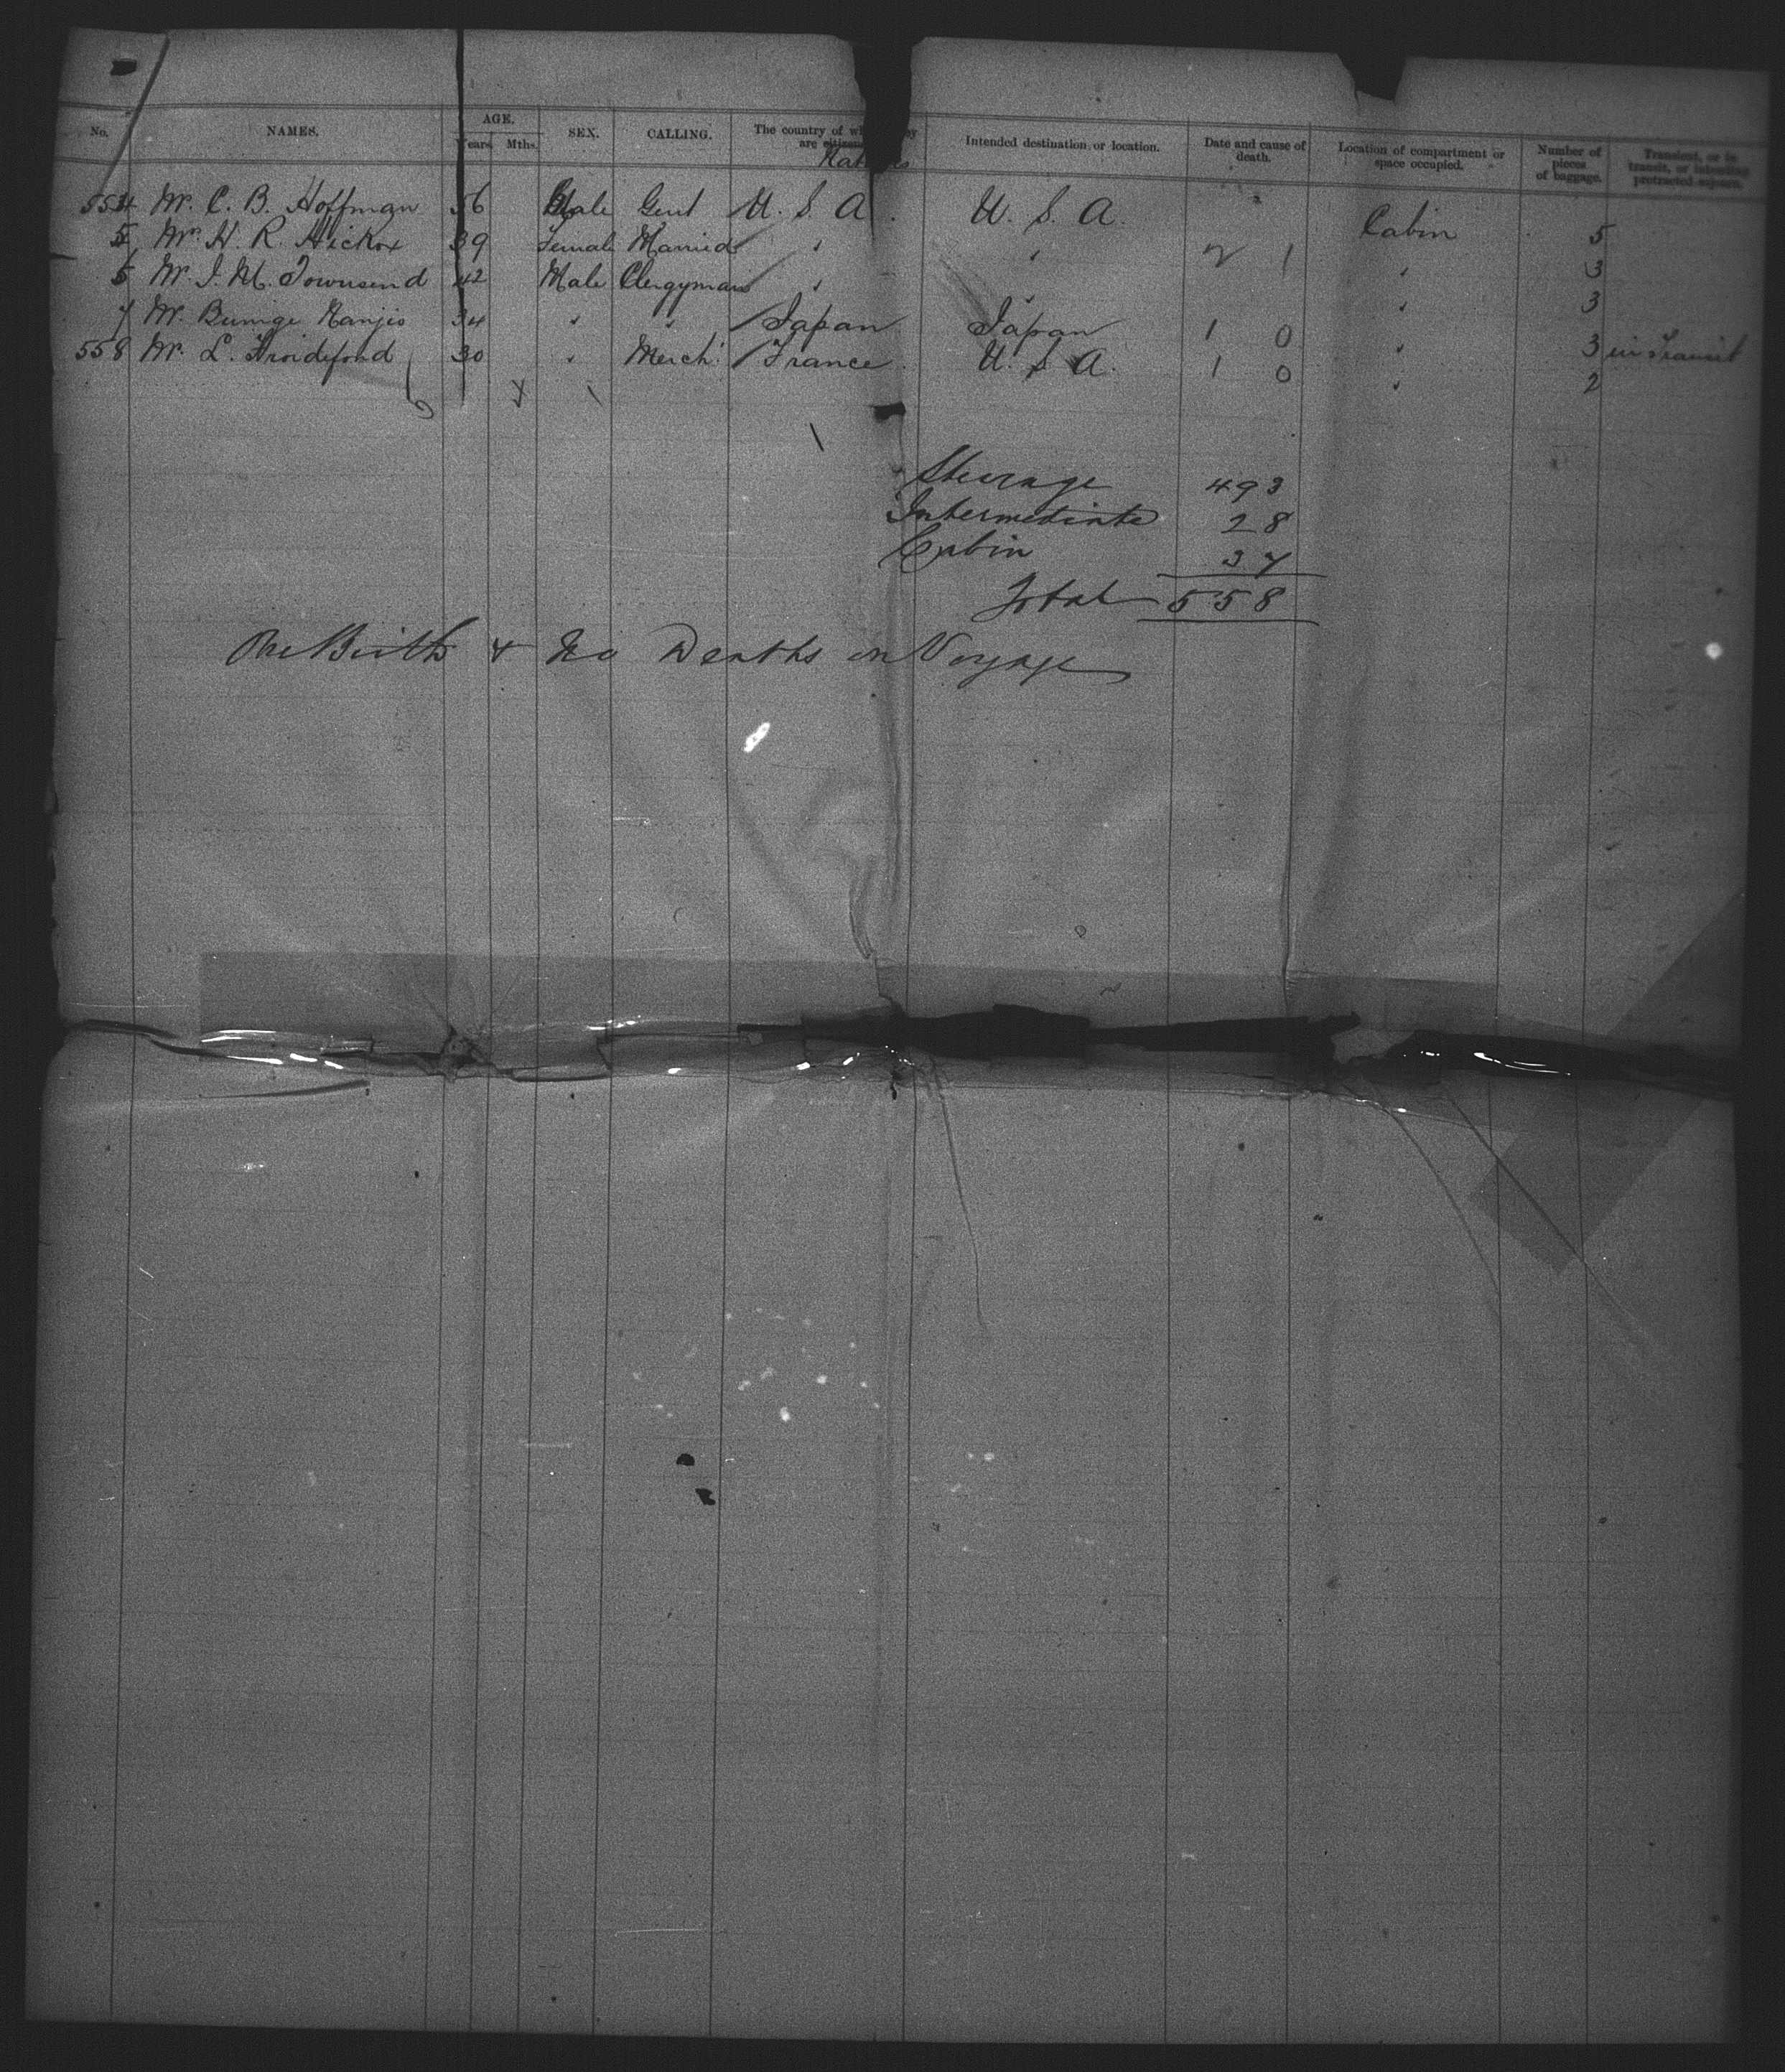 No. NAMES. AGE. SEX. CALLING. The country of are Intended destination or location. Date and cause of death. Location of compartment or space occupied. Number of pieces of baggage. Transient, or in transit, or intending protracted sojourn.
Years Mths.
554 Mr. C. B. Hoffman 56 Male Gent U. S. A. U. S. A. Cabin 5
5 H. R. Hickox 39 Female Married " " 2 1 " 3
6 Mr. J. M. Townsend 42 Male Clergyman " " " 3
7 Mr. 34 " " Japan Japan 1 0 " 3 in Transit
558 Mr. L. Froidefond 30 " Merch. France U. S. A. 1 0 " 2
Steerage 493
Intermediate 28
Cabin 37
Total 558
One Birth & No Deaths on Voyage